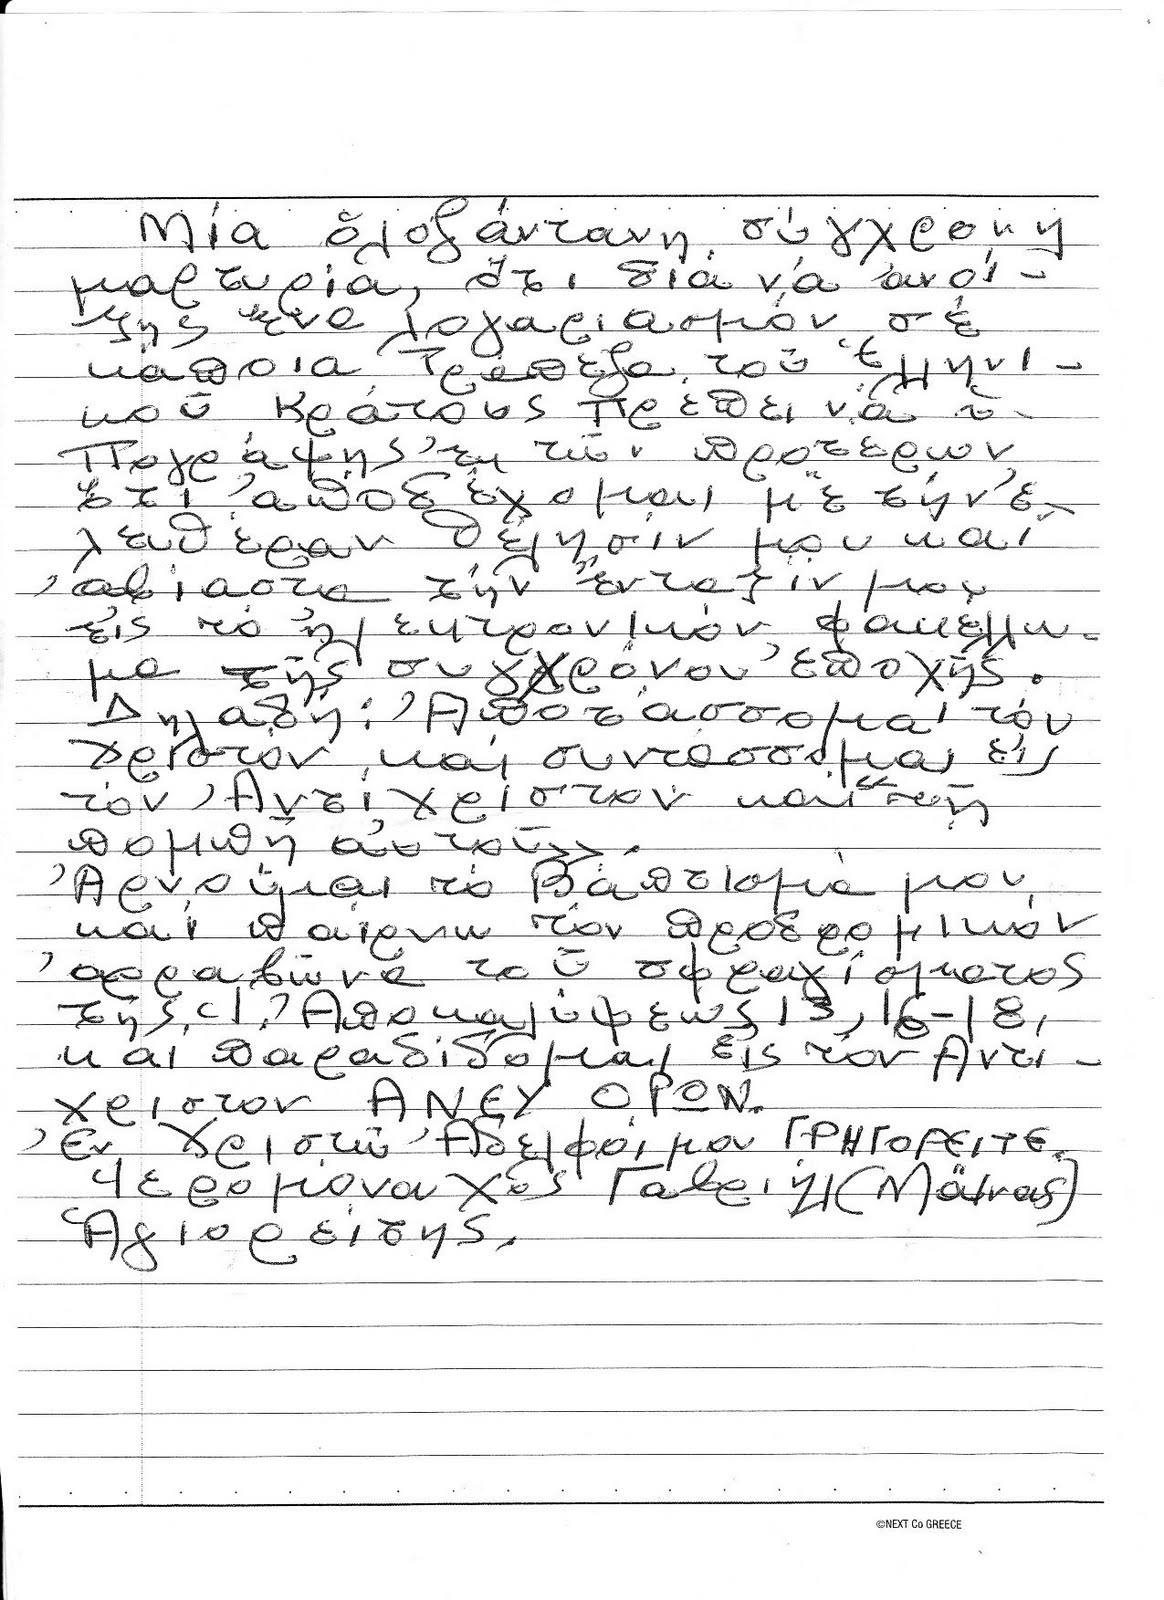 Μία ὁλοζώντανη σύγχρονη
μαρτυρία, ὅτι διά νά ἀνοί-
ξης ἕνα λογαριασμόν σέ
κάποια Τράπεζα τοῦ Ἑλληνι-
κοῦ Κράτους πρέπει νά ὑ-
πογράψης ἐκ τῶν προτέρων
ὅτι ἀποδέχομαι μέ τήν ἐ-
λευθέραν θέλησίν μου καί
ἀβίαστα τήν ἔνταξίν μου
εἰς τό ἠλεκτρονικόν φακέλλω-
μα τῆς συγχρόνου ἐποχῆς.
Δηλαδή: Ἀποτάσσομαι τόν
Χριστόν καί συντάσσομαι εἰς
τόν Ἀντίχριστον καί «τῇ
πομπῇ αὐτοῦ».
Ἀρνοῦμαι τό Βάπτισμά μου
καί παίρνω τόν προδρομικόν
ἀρραβῶνα τοῦ σφραγίσματος
τῆς Ἀποκαλύψεως 13, 16-18,
καί παραδίδομαι εἰς τόν Ἀντί-
χριστον ΑΝΕΥ ΟΡΩΝ.
Ἐν Χριστῷ Ἀδελφοί μου ΓΡΗΓΟΡΕΙΤΕ.
Ἱερομόναχος Γαβριήλ
Ἁγιορείτης.
©NEXT Co GREECE